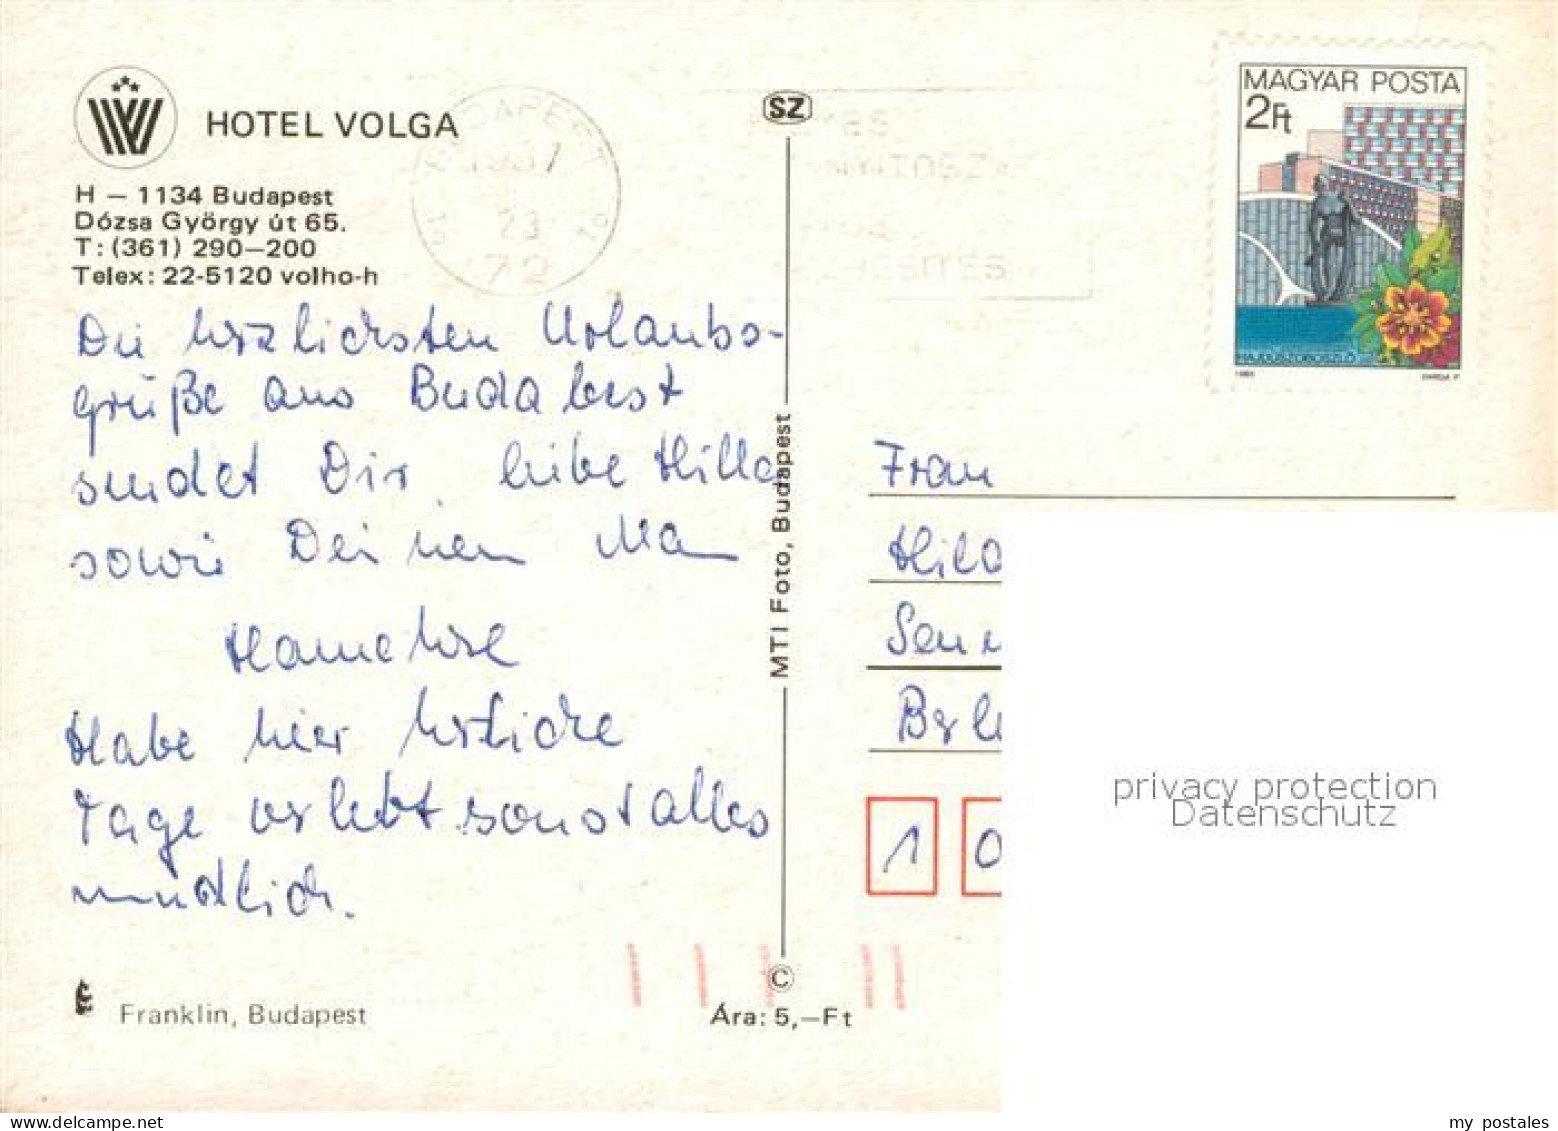 HOTEL VOLGA
H – 1134 Budapest
Dózsa György út 65.
T: (361) 290–200
Telex: 22-5120 volho-h
Die herzlichsten Urlaubs-
grüße aus Budabest
sendet Dir liebe Hilla
sowie Deinen Man
Hannelore
Habe hier herliche
Tage verlebt sonst alles
mündlich.
Franklin, Budapest
Ára: 5,–Ft
SZ
MTI Foto, Budapest
©
BUDAPEST
23
72
MAGYAR POSTA
2Ft
HAJDÚSZOBOSZLÓ
1985
VARGA P
Frau
Hild
Senn
Berl
1 0
privacy protection
Datenschutz
my postales